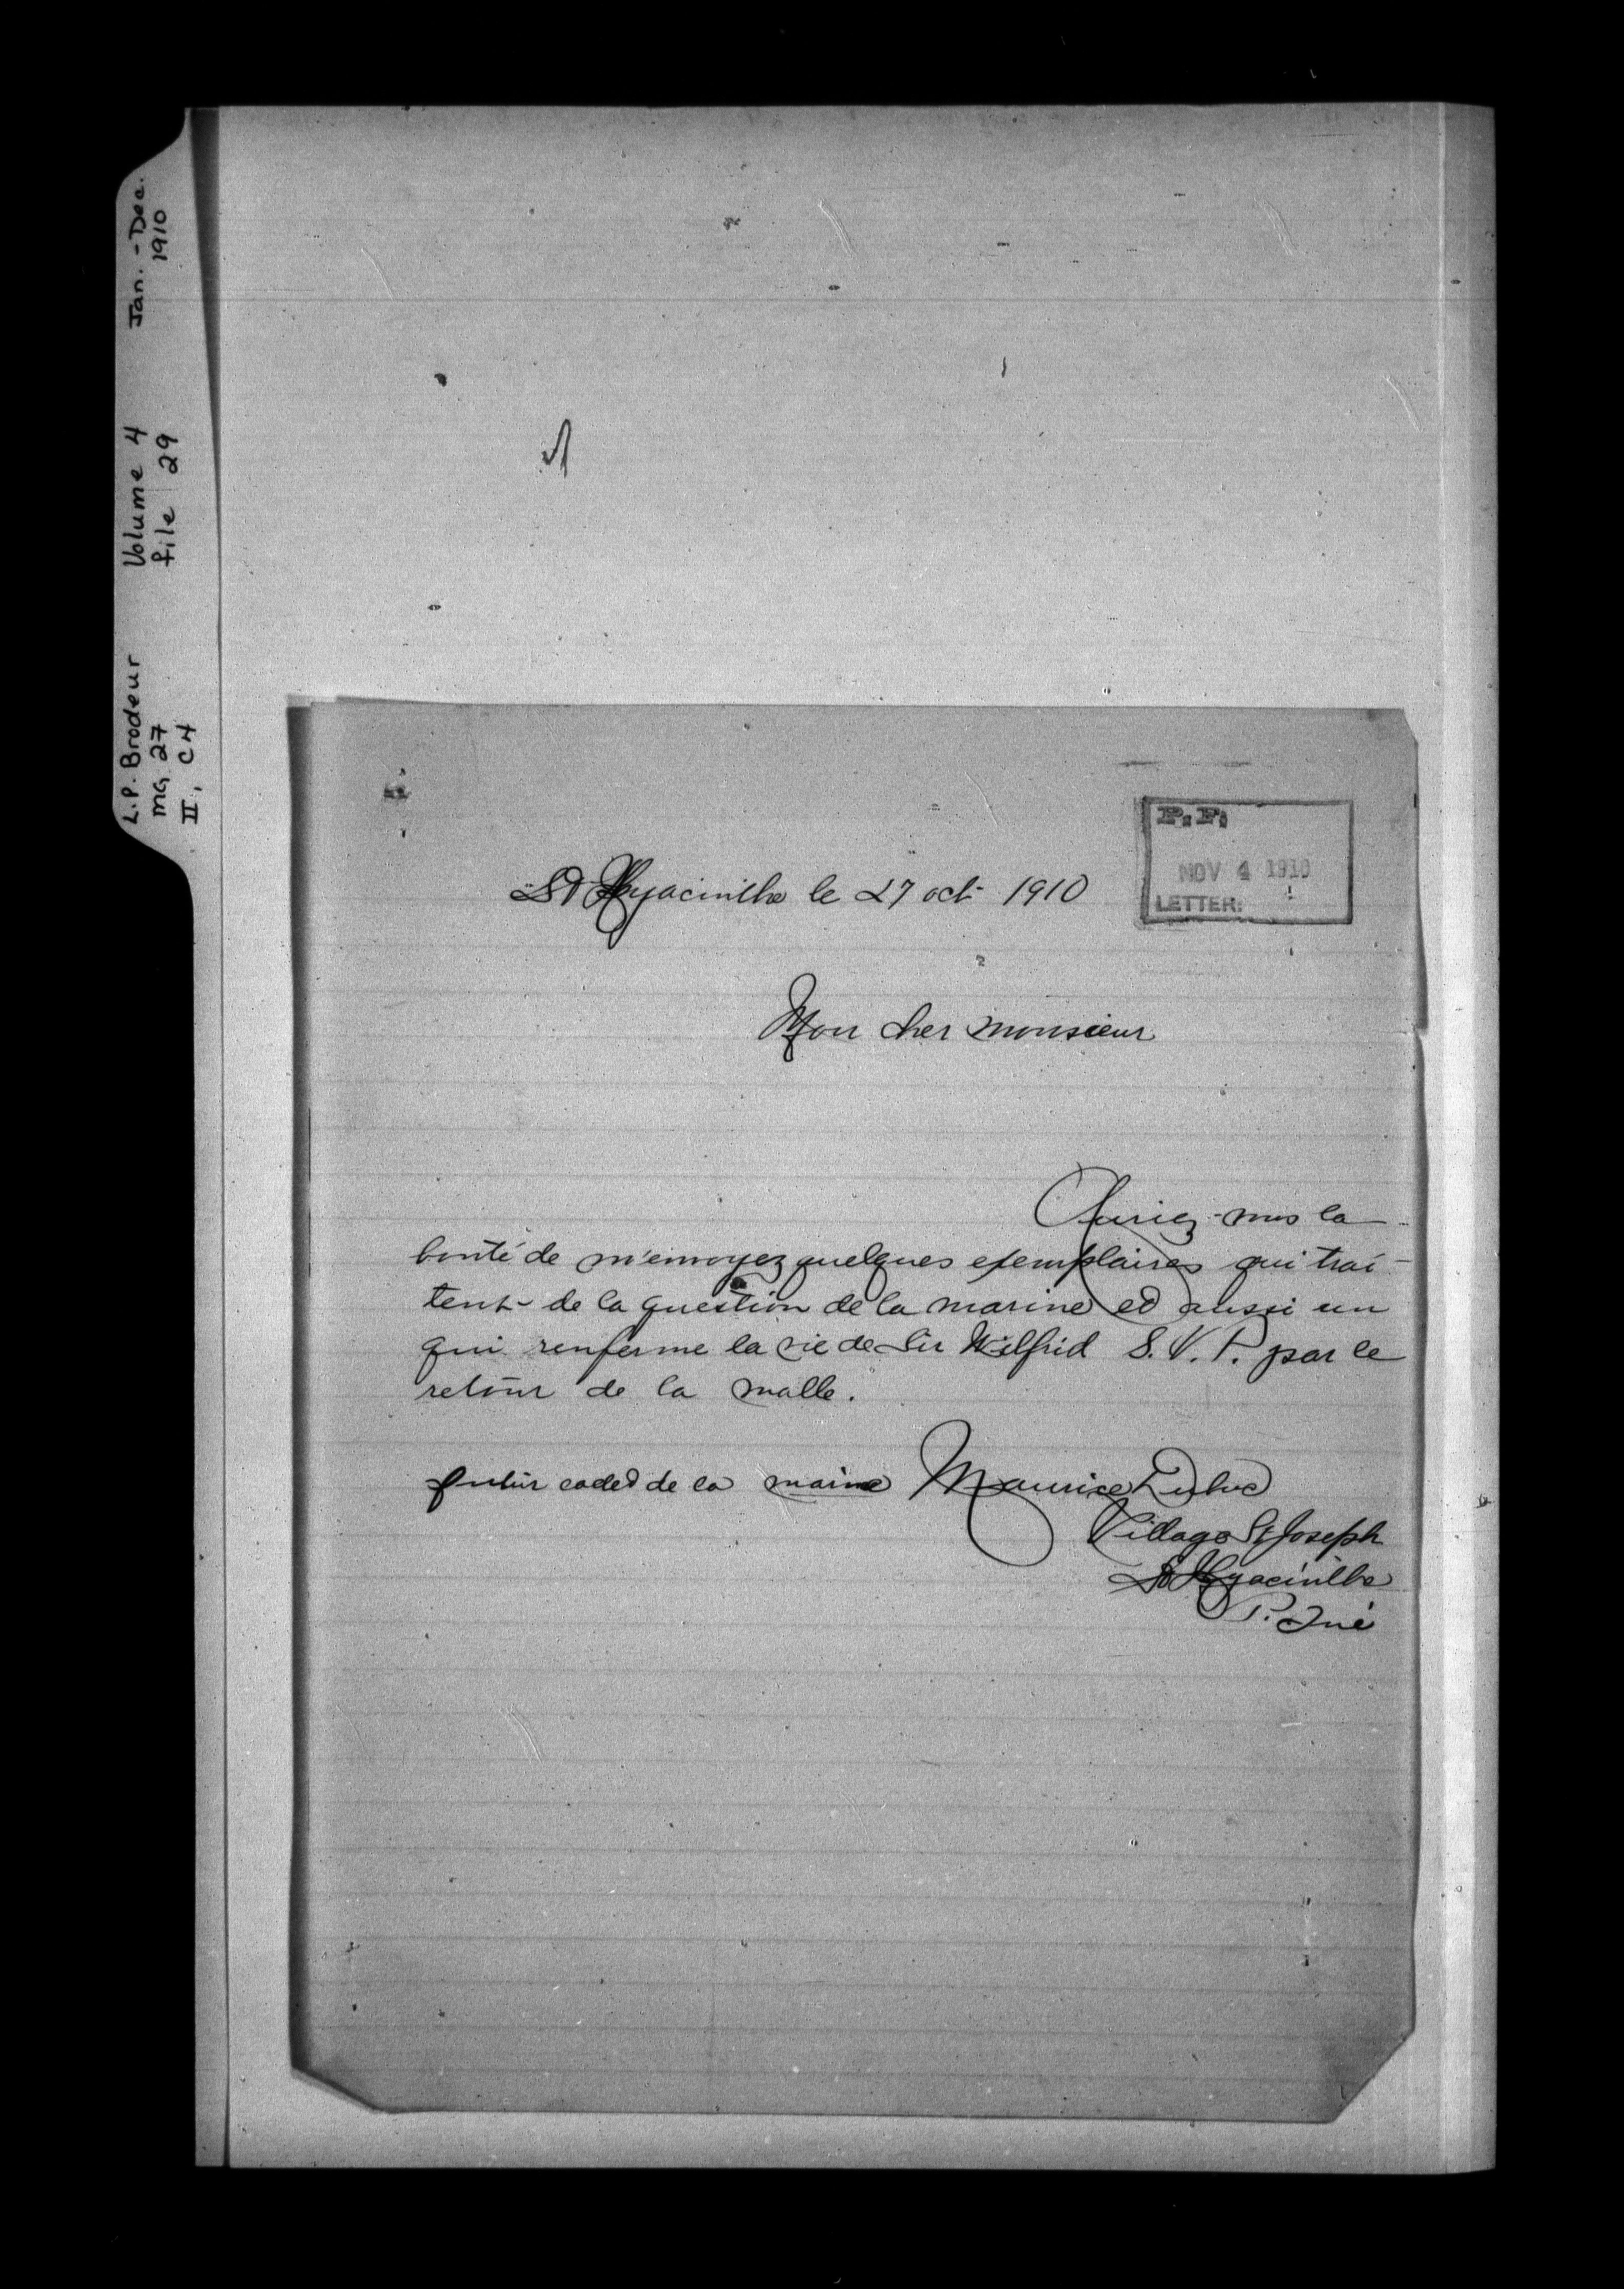 L.P. Brodeur Volume 4 Jan. - Dec.
MG 27 file 29 1910
II, C4
P. F.
NOV 4 1910
LETTER:
St Hyacinthe le 27 oct 1910
Mon cher monsieur
Auriez-vous la
bonté de m'envoyez quelques exemplaires qui trai-
tent de la question de la marine et aussi un
qui renferme la vie de Sir Wilfrid S.V.P. par le
retour de la malle.
futur cadet de la marine Maurice Duluc
Village St Joseph
St Hyacinthe
P. Qué